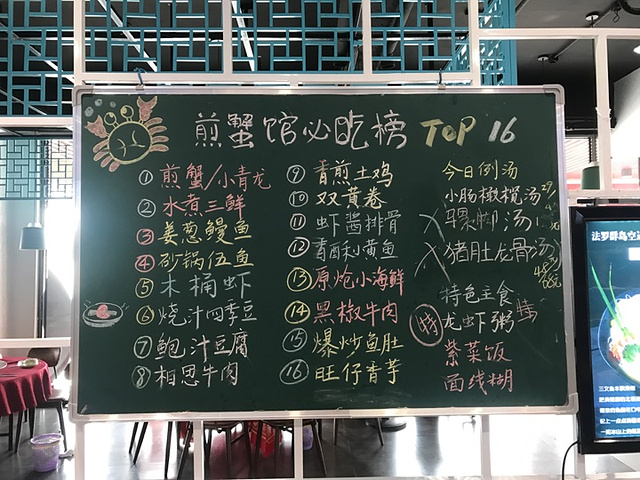 煎蟹馆必吃榜 TOP 16
① 煎蟹/小青龙
② 水煮三鲜
③ 姜葱鳗鱼
④ 砂锅伍鱼
⑤ 木桶虾
⑥ 烧汁四季豆
⑦ 鲍汁豆腐
⑧ 相思牛肉
⑨ 青煎土鸡
⑩ 双黄卷
⑪ 虾酱排骨
⑫ 香酥小黄鱼
⑬ 原炝小海鲜
⑭ 黑椒牛肉
⑮ 爆炒鱼肚
⑯ 旺仔香芋
今日例汤
小肠橄榄汤
脚汤
猪肚龙骨汤
特色主食
特 龙虾粥
紫菜饭
面线糊